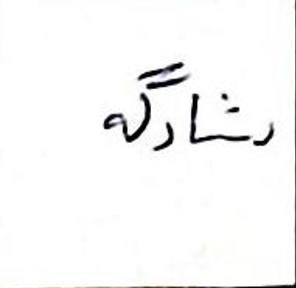 رشادگه